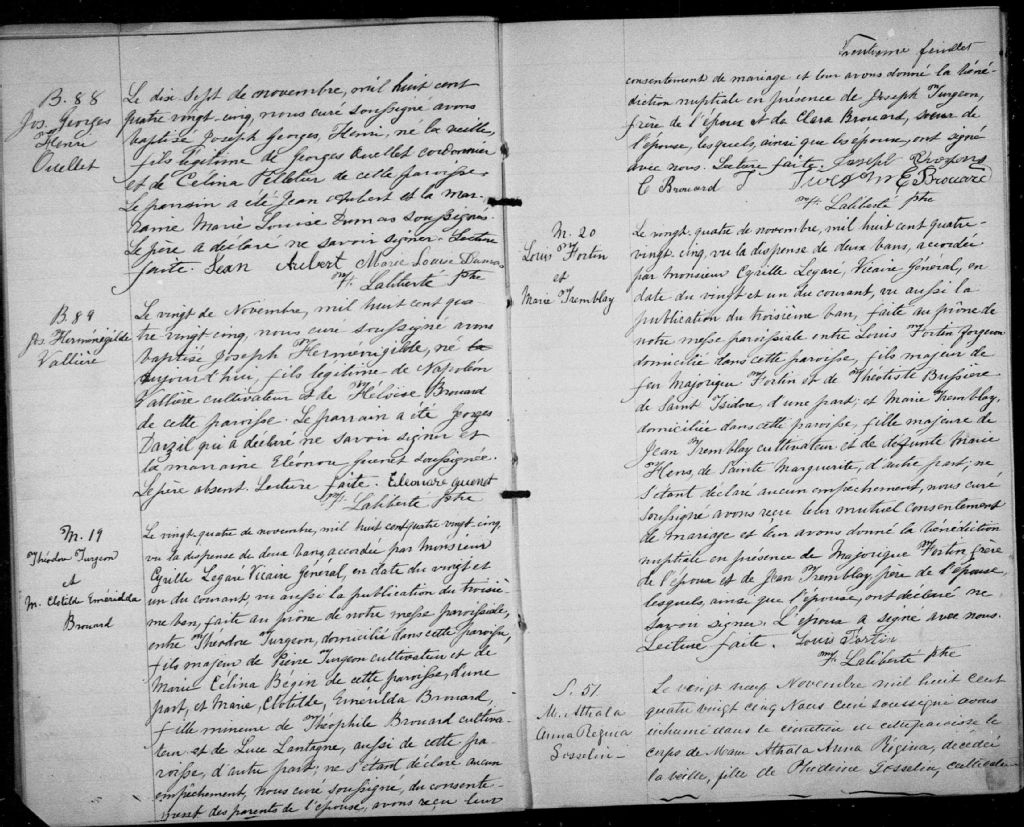 B. 88
Jos. Georges
Henri
Ouellet
Le dix sept de novembre, mil huit cent
quatre vingt-cinq, nous curé soussigné avons
baptisé Joseph Georges, Henri, né la veille,
fils légitime de Georges Ouellet cordonnier
et de Célina Pelletier de cette paroisse.
Le parrain a été Jean Aubert et la mar-
raine Marie Louise Dumas soussignés.
Le père a déclaré ne savoir signer. Lecture
faite. Jean Aubert Marie Louise Dumas
Laliberté ptre
B 89
Jos Herménégilde
Vallière
Le vingt de Novembre, mil huit cent qua-
tre vingt cinq, nous curé soussigné avons
baptisé Joseph Herménégilde, né la
aujourd'hui, fils légitime de Napoléon
Vallière cultivateur et de Héloïse Brouard
de cette paroisse. Le parrain a été Georges
qui a déclaré ne savoir signer et
la marraine Eléonore Guenet soussignée.
Le père absent. Lecture faite. Eléonore Guenet
Laliberté ptre
M. 19
Théodore Turgeon
et
M. Clotilde Emérilda
Brouard
Le vingt-quatre de novembre, mil huit cent quatre vingt-cinq,
vu la dispense de deux bans, accordée par monsieur
Cyrille Legaré Vicaire Général, en date du vingt et
un du courant, vu aussi la publication du troisiè-
me ban, faite au prône de notre messe paroissiale,
entre Théodore Turgeon, domicilié dans cette paroisse,
fils majeur de Pierre Turgeon cultivateur et de
Marie Célina Bégin de cette paroisse, d'une
part, et Marie, Clotilde, Emérilda Brouard,
fille mineure de Théophile Brouard cultiva-
teur et de Luce Lantagne, aussi de cette pa-
roisse, d'autre part; ne s'étant déclaré aucun
empêchement, nous curé soussigné, du consente-
ment des parents de l'épouse, avons reçu leur
Trentième feuillet
consentement de mariage et leur avons donné la béné-
diction nuptiale en présence de Joseph Turgeon,
frère de l'époux et de Clara Brouard, soeur de
l'épouse, lesquels, ainsi que les époux, ont signé
avec nous. Lecture faite. Joseph
C Brouard T M E Brouard
Laliberté ptre
M. 20
Louis Fortin
et
Marie Tremblay
Le vingt-quatre de novembre, mil huit cent quatre-
vingt-cinq, vu la dispense de deux bans, accordée
par monsieur Cyrille Legaré, Vicaire Général, en
date du vingt et un du courant, vu aussi la
publication du troisième ban, faite au prône de
notre messe paroissiale entre Louis Fortin forgeron
domicilié dans cette paroisse, fils majeur de
feu Majorique Fortin et de Théotiste Bussière
de Saint Isidore, d'une part; et Marie Tremblay,
domiciliée dans cette paroisse, fille majeure de
Jean Tremblay cultivateur et de défunte Marie
Hens, de Sainte Marguerite, d'autre part; ne
s'étant déclaré aucun empêchement, nous curé
soussigné avons reçu leur mutuel consentement
de mariage et leur avons donné la bénédiction
nuptiale en présence de Majorique Fortin, frère
de l'époux et de Jean Tremblay, père de l'épouse,
lesquels, ainsi que l'épouse, ont déclaré ne
savoir signer. L'époux a signé avec nous.
Lecture faite. Louis Fortin
Laliberté ptre
S. 51
M. Athala
Anna Régina
Gosselin
Le vingt neuf Novembre mil huit cent
quatre vingt cinq Nous curé soussigné avons
inhumé dans le cimetière de cette paroisse le
corps de Marie Athala Anna Régina, décédée
la veille, fille de Gosselin, cultiva-